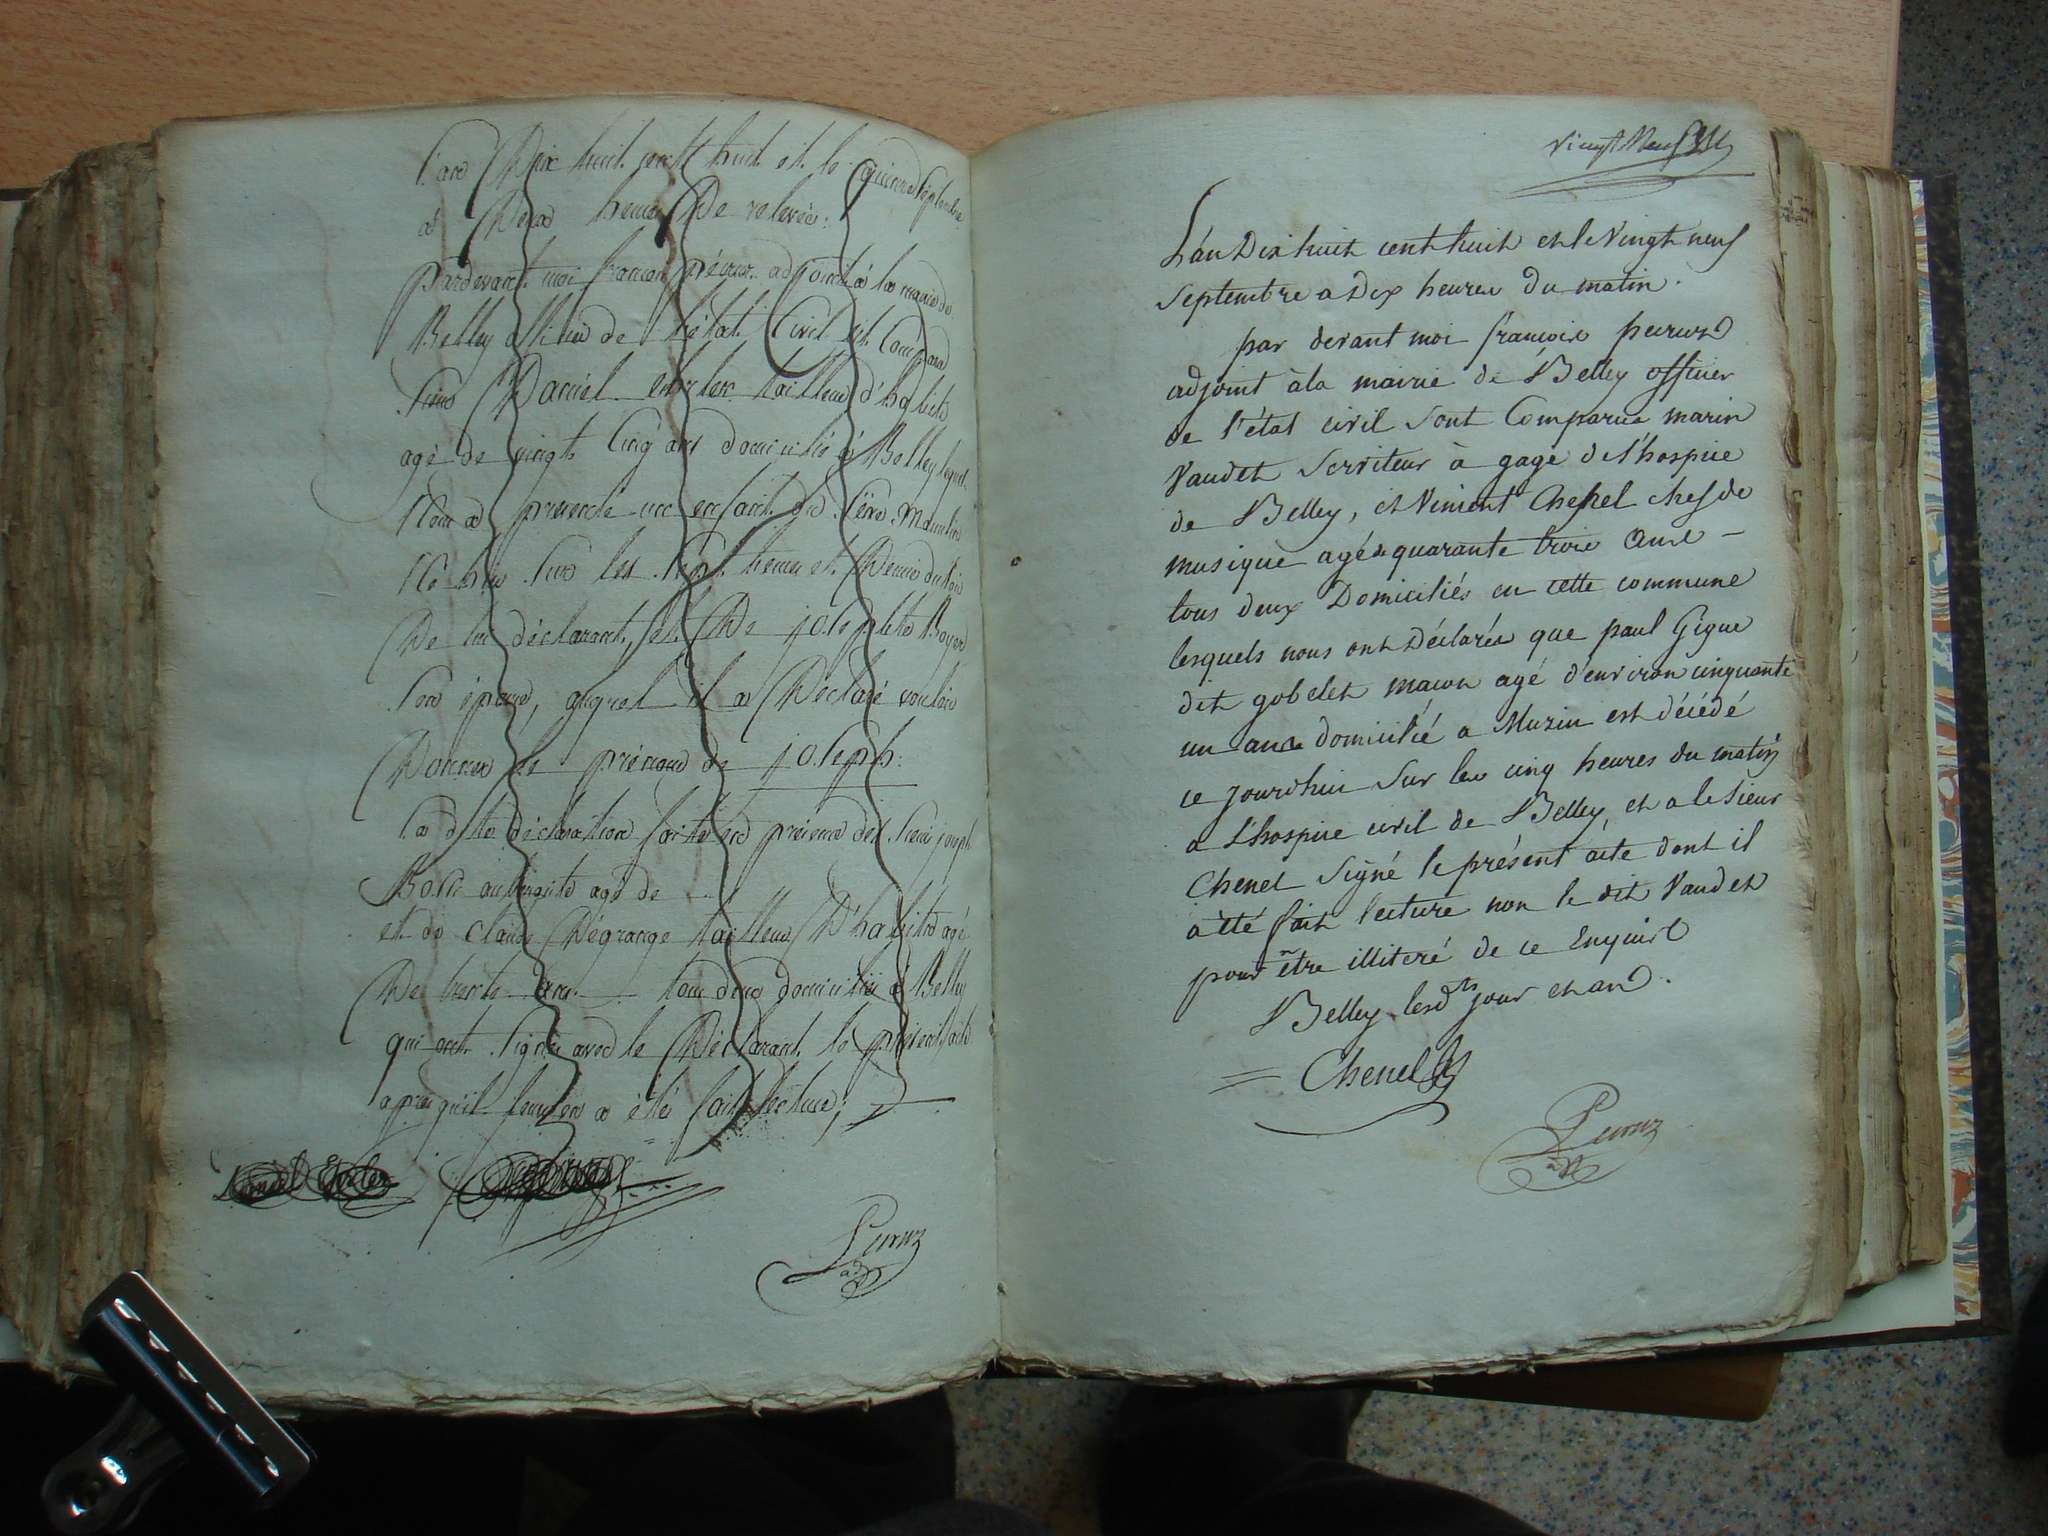 L'an Dix huit cent huit et le quinze septembre
à Deux heures De relevée.
pardevant moi françois péeruz adjoint à la mairie de
Belley officier de l'état Civil est Comparu
sieur Daniel tailleur d'habits
agé de vingt Cinq ans domicilié à Belley lequel
Nous a présenté un enfant du sexe Masculin
Né hier sur les sept heures et Demie du soir
De lui déclarant, et De josephte Boyer
son épouse, auquel il a Déclaré vouloir
Donner le prénom de joseph:
la dite déclaration faite en présence des sieurs joseph
aubergiste agé de
et de Claude Dégrange tailleur D'habits agé
De trente ans tous deux domiciliés à Belley
qui ont signé avec le Déclarant le présent acte
après qu'il leur en a été fait lecture;
Daniel
Peeruz
adt
Vingt Neuf
L'an Dix huit cent huit et le Vingt neuf
Septembre a Dix heures Du matin.
par devant moi françois peeruz
adjoint à la mairie de Belley officier
de l'état civil sont Comparus marin
Vaudet Serviteur à gage de l'hospice
de Belley, et Vincent Chenel chef de
musique agé de quarante trois ans –
tous deux Domiciliés en cette commune
lesquels nous ont Déclarés que paul Gigue
dit gobelet maçon agé d'environ cinquante
un ans domicilié a Muzin est décédé
ce jourdhui sur les cinq heures du matin
a L'hospice civil de Belley, et a le sieur
Chenel signé le présent acte dont il
a été fait lecture non le dit Vaudet
pour être illiteré de ce Enquis
Belley lesdts jour et an.
= Chenel
Peeruz
adt